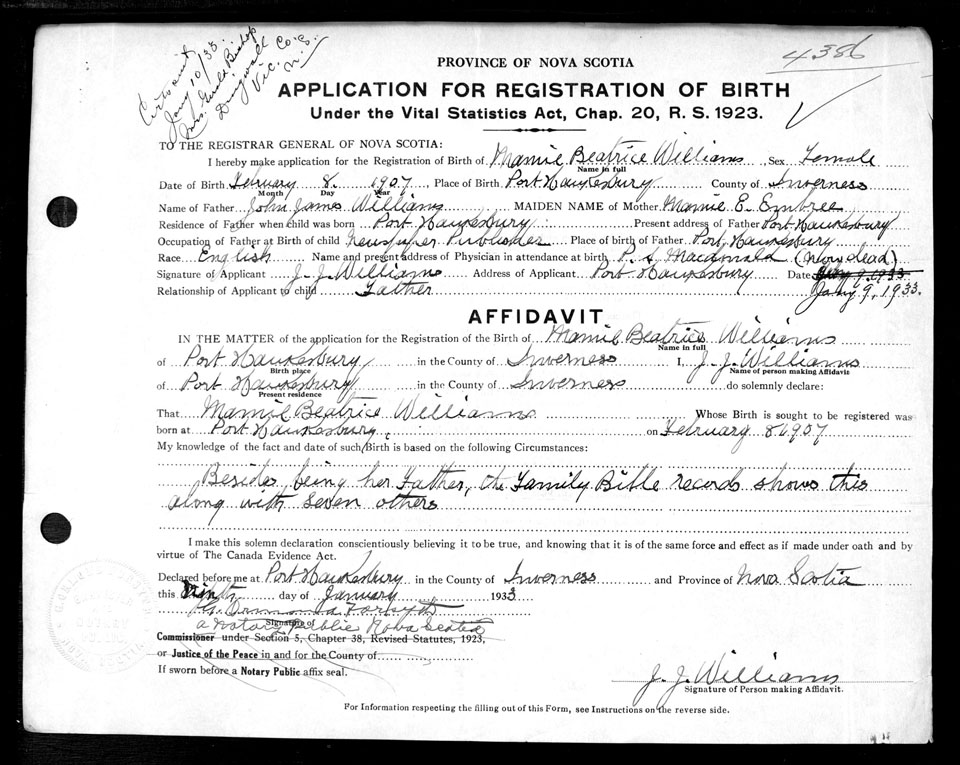 Cert sent
Jany 10/33.
Mrs. Earle Bishop
Dingwall
Vic. Co.
N.S.
4386
PROVINCE OF NOVA SCOTIA
APPLICATION FOR REGISTRATION OF BIRTH
Under the Vital Statistics Act, Chap. 20, R. S. 1923.
TO THE REGISTRAR GENERAL OF NOVA SCOTIA:
I hereby make application for the Registration of Birth of Mamie Beatrice Williams Sex Female
Name in full
Date of Birth February 8. 1907 Place of Birth Port Hawkesbury County of Inverness
Month Day Year
Name of Father John James Williams MAIDEN NAME of Mother Mamie E. Embree
Residence of Father when child was born Port Hawkesbury Present address of Father Port Hawkesbury
Occupation of Father at Birth of child Newspaper Publisher Place of birth of Father Port Hawkesbury
Race English Name and present address of Physician in attendance at birth P. A. Macdonald (Now dead)
Signature of Applicant J. J. Williams Address of Applicant Port Hawkesbury Date Jany 9, 1933
Relationship of Applicant to child Father Jany 9, 1933.
AFFIDAVIT
IN THE MATTER of the application for the Registration of the Birth of Mamie Beatrice Williams
Name in full
of Port Hawkesbury in the County of Inverness I, J. J. Williams
Birth place Name of person making Affidavit
of Port Hawkesbury in the County of Inverness do solemnly declare:
Present residence
That Mamie Beatrice Williams Whose Birth is sought to be registered was
born at Port Hawkesbury, on February 8 1907
My knowledge of the fact and date of such Birth is based on the following Circumstances:
Besides being her Father, the Family Bible records shows this
along with seven others
I make this solemn declaration conscientiously believing it to be true, and knowing that it is of the same force and effect as if made under oath and by
virtue of The Canada Evidence Act.
Declared before me at Port Hawkesbury in the County of Inverness and Province of Nova Scotia
this Ninth day of January 1933
Ormond Forsyth
a Notary Public Nova Scotia
Signature of
Commissioner under Section 5, Chapter 38, Revised Statutes, 1923,
or Justice of the Peace in and for the County of
If sworn before a Notary Public affix seal.
J. J. Williams
Signature of Person making Affidavit.
For Information respecting the filling out of this Form, see Instructions on the reverse side.